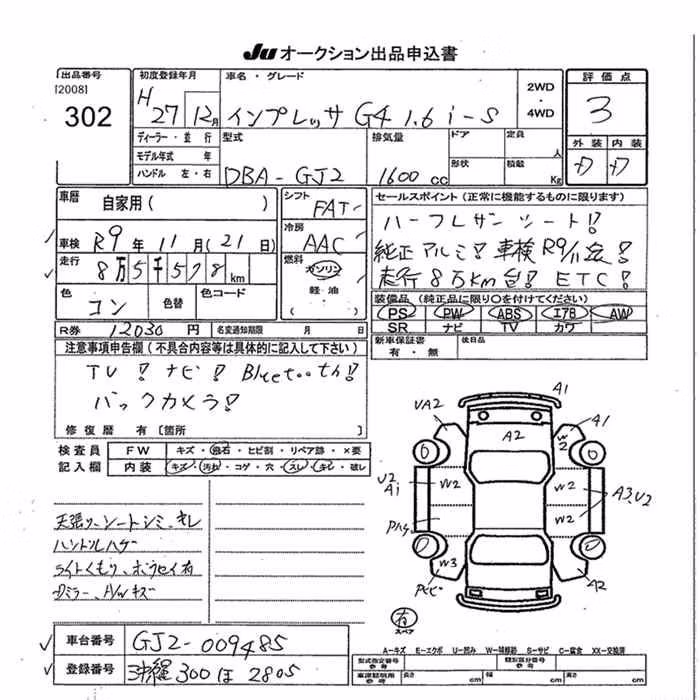 JU オークション出品申込書
出品番号
[2008]
302
初度登録年月
H 27年 12月
ディーラー・並行
モデル年式 年
ハンドル 左・右
車名・グレード
インプレッサ G4 1.6 i-S
2WD
・
4WD
型式
DBA-GJ2
排気量
1600 cc
ドア
形状
定員
人
積載
Kg
評価点
3
外装 内装
D D
車歴
自家用( )
車検 R9年 11月(21日)
走行 8万5千578km
色
コン
色替
色コード
シフト
FAT
冷房
AAC
燃料
ガソリン
・
軽油
( )
R券 12030円
名変通知期限 月 日
セールスポイント(正常に機能するものに限ります)
ハーフレザーシート!
純正アルミ!車検R9/11迄!
走行8万km台!ETC!
装備品(純正品に限り○を付けてください)
PS PW ABS エアB AW
SR ナビ TV カワ
新車保証書
有・無
後日品
注意事項申告欄(不具合内容等は具体的に記入して下さい)
TV!ナビ!Bluetooth!
バックカメラ!
修復歴 有[箇所 ]
検査員
記入欄
FW キズ・飛石・ヒビ割・リペア跡・×要
内装 キズ・汚れ・コゲ・穴・スレ・キレ・破レ
天張リ、シートシミ、キレ
ハンドルハゲ
ライトくもり、ホウセイ有
Dミラー、A/Wキズ
A1
VA2
A2
A1
W2
U2
A1
W2
W2
A3,U2
Pハゲ
W2
W3
Pヒビ
A2
有
スペア
A-キズ E-エクボ U-凹み W-補修跡 S-サビ C-腐食 XX-交換済
車台番号 GJ2-009485
登録番号 沖縄 300 ほ 2805
型式指定番号
参考
類別区分番号
参考
車庫証明用
参考
長さ cm 幅 cm 高さ cm